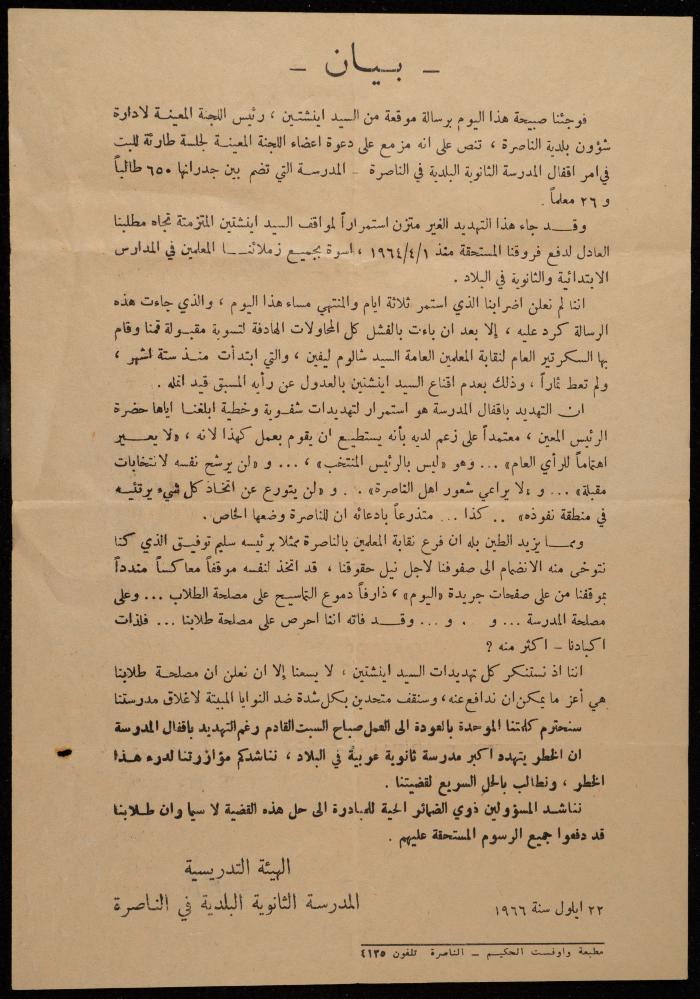 ـ بيـان ـ
فوجئنا صبيحة هذا اليوم برسالة موقعة من السيد اينشتين ، رئيس اللجنة المعينة لادارة
شؤون بلدية الناصرة ، تنص على انه مزمع على دعوة اعضاء اللجنة المعينة لجلسة طارئة للبت
في امر اقفال المدرسة الثانوية البلدية في الناصرة ـ المدرسة التي تضم بين جدرانها ٦٥٠ طالباً
و ٢٦ معلماً .
وقــد جاء هذا التهديد الغير متزن استمراراً لمواقف السيد اينشتين المتزمتة تجاه مطلبنا
العادل لدفع فروقنا المستحقة منذ ١٩٦٤/٤/١ ، اسوة بجميع زملائنــا المعلمين في المدارس
الابتدائية والثانوية في البلاد .
اننا لم نعلن اضرابنا الذي استمر ثلاثة ايام والمنتهي مساء هذا اليوم ، والذي جاءت هذه
الرسالة كرد عليه ، إلا بعد ان باءت بالفشل كل المحاولات الهادفة لتسوية مقبولة قمنا وقام
بها السكرتير العام لنقابة المعلمين العامة السيد شالوم ليفين ، والتي ابتدأت منـذ ستة اشهر ،
ولم تعط ثماراً ، وذلك بعدم اقناع السيد اينشتين بالعدول عن رأيه المسبق قيد انمله .
ان التهديد باقفال المدرسة هو استمرار لتهديدات شفوية وخطية ابلغنا اياها حضرة
الرئيس المعين ، معتمداً على زعم لديه بأنه يستطيع ان يقوم بعمل كهذا لانه ، «لا يعــير
اهتماماً للرأي العام» ... وهو «ليس بالرئيس المنتخب» ، ... و «لن يرشح نفسه لانتخابات
مقبلة» ... و «لا يراعي شعور اهل الناصرة» .. و «لن يتورع عن اتخاذ كل شيء يرتئيه
في منطقة نفوذه» .. كذا ... متذرعاً بادعائه ان للناصرة وضعها الخاص .
وممـا يزيد الطين بله ان فرع نقابة المعلمين بالناصرة ممثلا برئيسه سليم توفيق الذي كنا
نتوخى منه الانضمام الى صفوفنا لاجل نيل حقوقنا ، قد اتخذ لنفسه موقفاً معاكساً منددأ
بموقفنا من على صفحات جريدة «اليوم» ، ذارفاً دموع التماسيح على مصلحة الطلاب ... وعلى
مصلحة المدرسة ... و .. و ... وقــد فاته اننا احرص على مصلحة طلابنا ... فلذات
اكبادنا ـ اكثر منه ؟
اننا اذ نستنكر كل تهديدات السيد اينشتين ، لا يسعنا إلا ان نعلن ان مصلحـة طلابنا
هي أعز ما يمكن ان ندافع عنه ، وسنقف متحدين بكل شدة ضد النوايا المبيتة لاغلاق مدرستنا
سنحترم كلمتنا الموحدة بالعودة الى العمل صباح السبت القادم رغم التهديد باقفال المدرسة
ان الخطر يتهدد اكبر مدرسة ثانوية عربية في البلاد ، نناشدكم مؤازرتنا لدرء هــذا
الخطر ، ونطالب بالحل السريع لقضيتنا .
نناشد المسؤولين ذوي الضمائر الحية للمبادرة الى حل هذه القضية لا سيما وان طـلابنا
قد دفعوا جميع الرسوم المستحقة عليهم .
الهيئة التدريسية
المدرسة الثانوية البلدية في الناصرة
٢٢ ايلول سنة ١٩٦٦
مطبعة واوفست الحكيـم ـ الناصرة تلفون ٤١٣٥